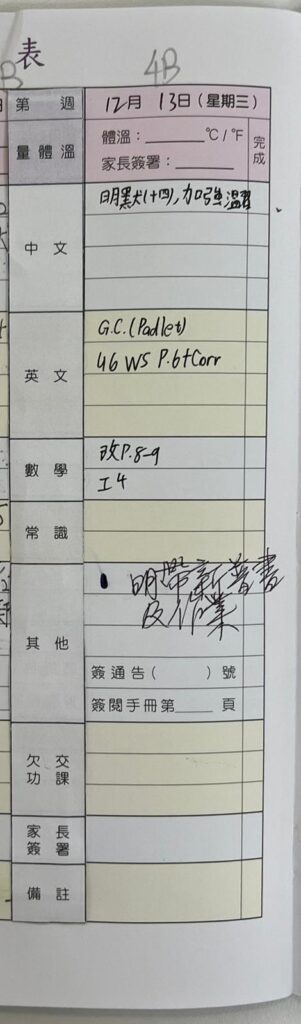 表
4B
第 週 12月 13日(星期三)
量體溫 體溫:______℃/℉ 完成
家長簽署:______
中文 明默(十四),加強溫習
英文 G.C.(Padlet)
46 WS P.6+Corr
數學 改P.8-9
工4
常識
其他 明帶新普書
及作業
簽通告( )號
簽閱手冊第____頁
欠交
功課
家長
簽署
備註